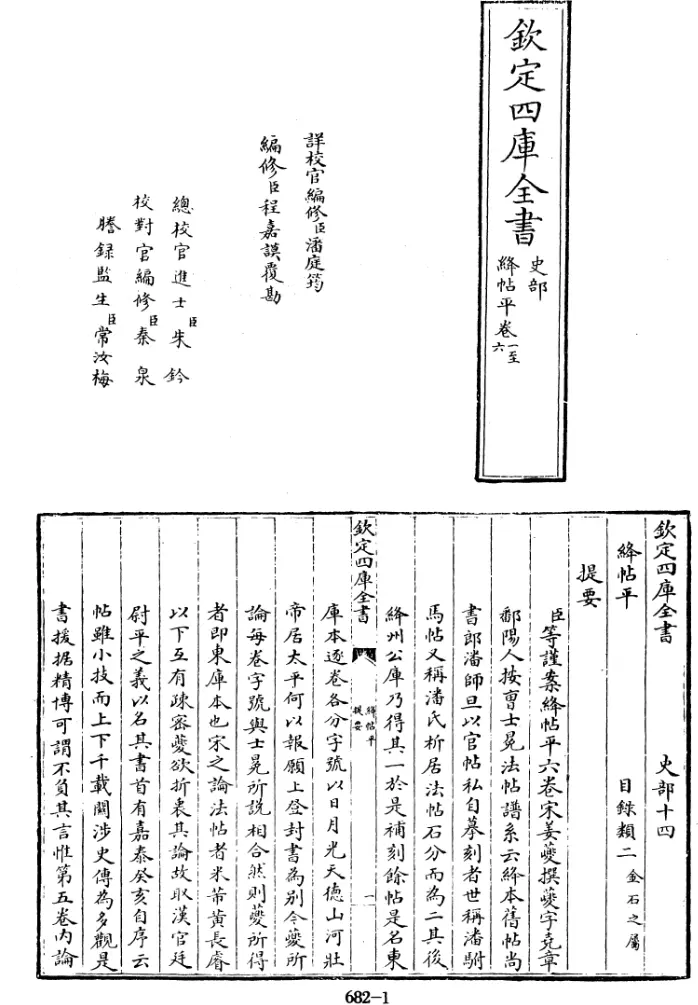 欽定四庫全書
史部
絳帖平卷一至六
詳校官編修臣潘庭筠
編修臣程嘉謨覆勘
總校官進士臣朱鈐
校對官編修臣秦泉
謄錄監生臣常汝梅
欽定四庫全書 史部十四
絳帖平 目錄類二金石之屬
提要
臣等謹案絳帖平六卷宋姜夔撰夔字堯章
鄱陽人按曾士冕法帖譜系云絳本舊帖尚
書郎潘師旦以官帖私自摹刻者世稱潘駙
馬帖又稱潘氏析居法帖石分而為二其後
絳州公庫乃得其一於是補刻餘帖是名東
欽定四庫全書
絳帖平
提要
一
庫本逐卷各分字號以日月光天德山河壯
帝居太平何以報願上登封書為别今夔所
論每卷字號與士冕所説相合然則夔所得
者即東庫本也宋之論法帖者米芾黄長睿
以下互有疎密夔欲折衷其論故取漢官廷
尉平之義以名其書首有嘉泰癸亥自序云
帖雖小技而上下千載闗涉史傳為多觀是
書援据精博可謂不負其言惟第五卷内論
682-1